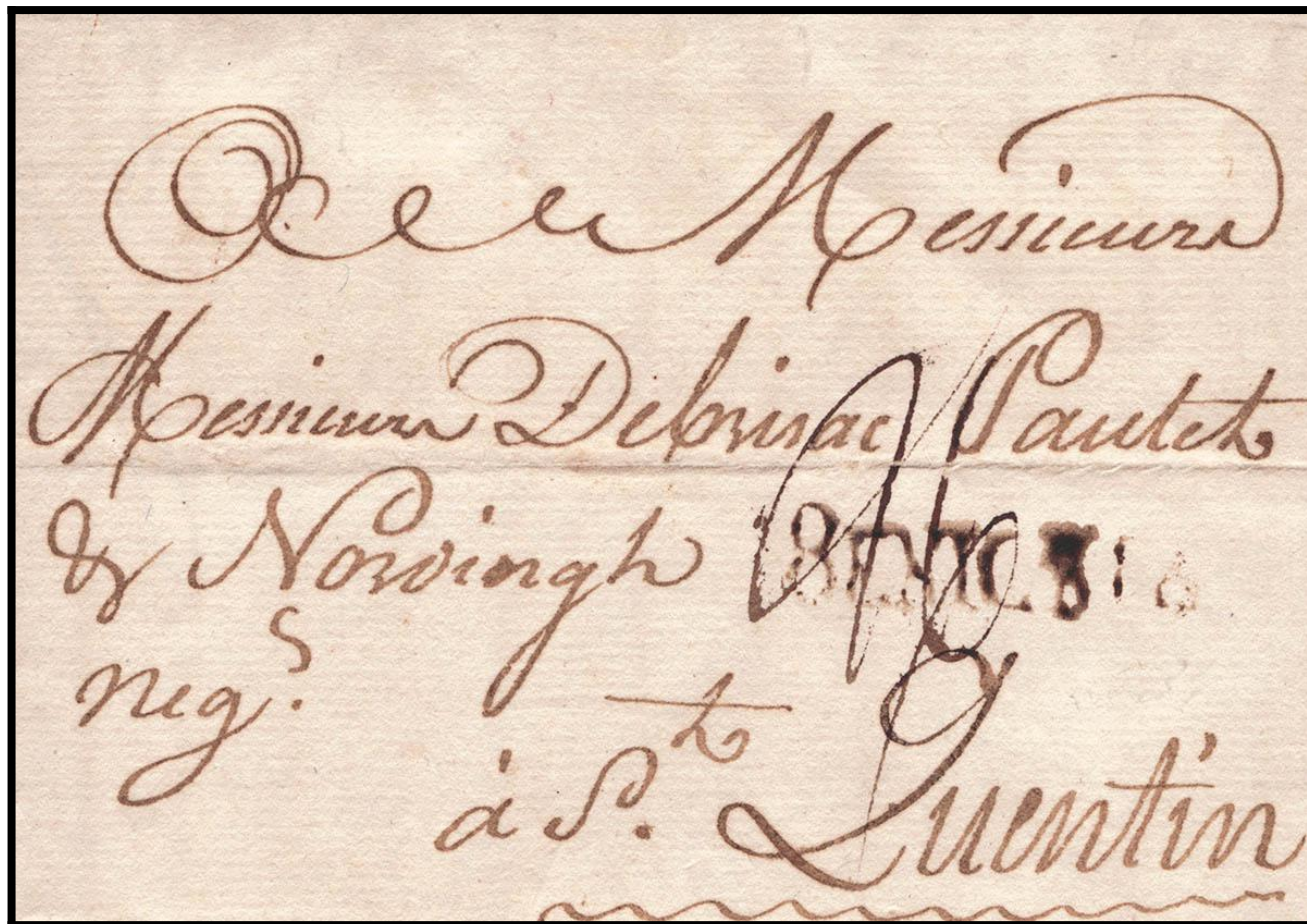 A Messieurs
Messieurs Debrisac Pautet
& Norvingh
negs.
à St. Quentin